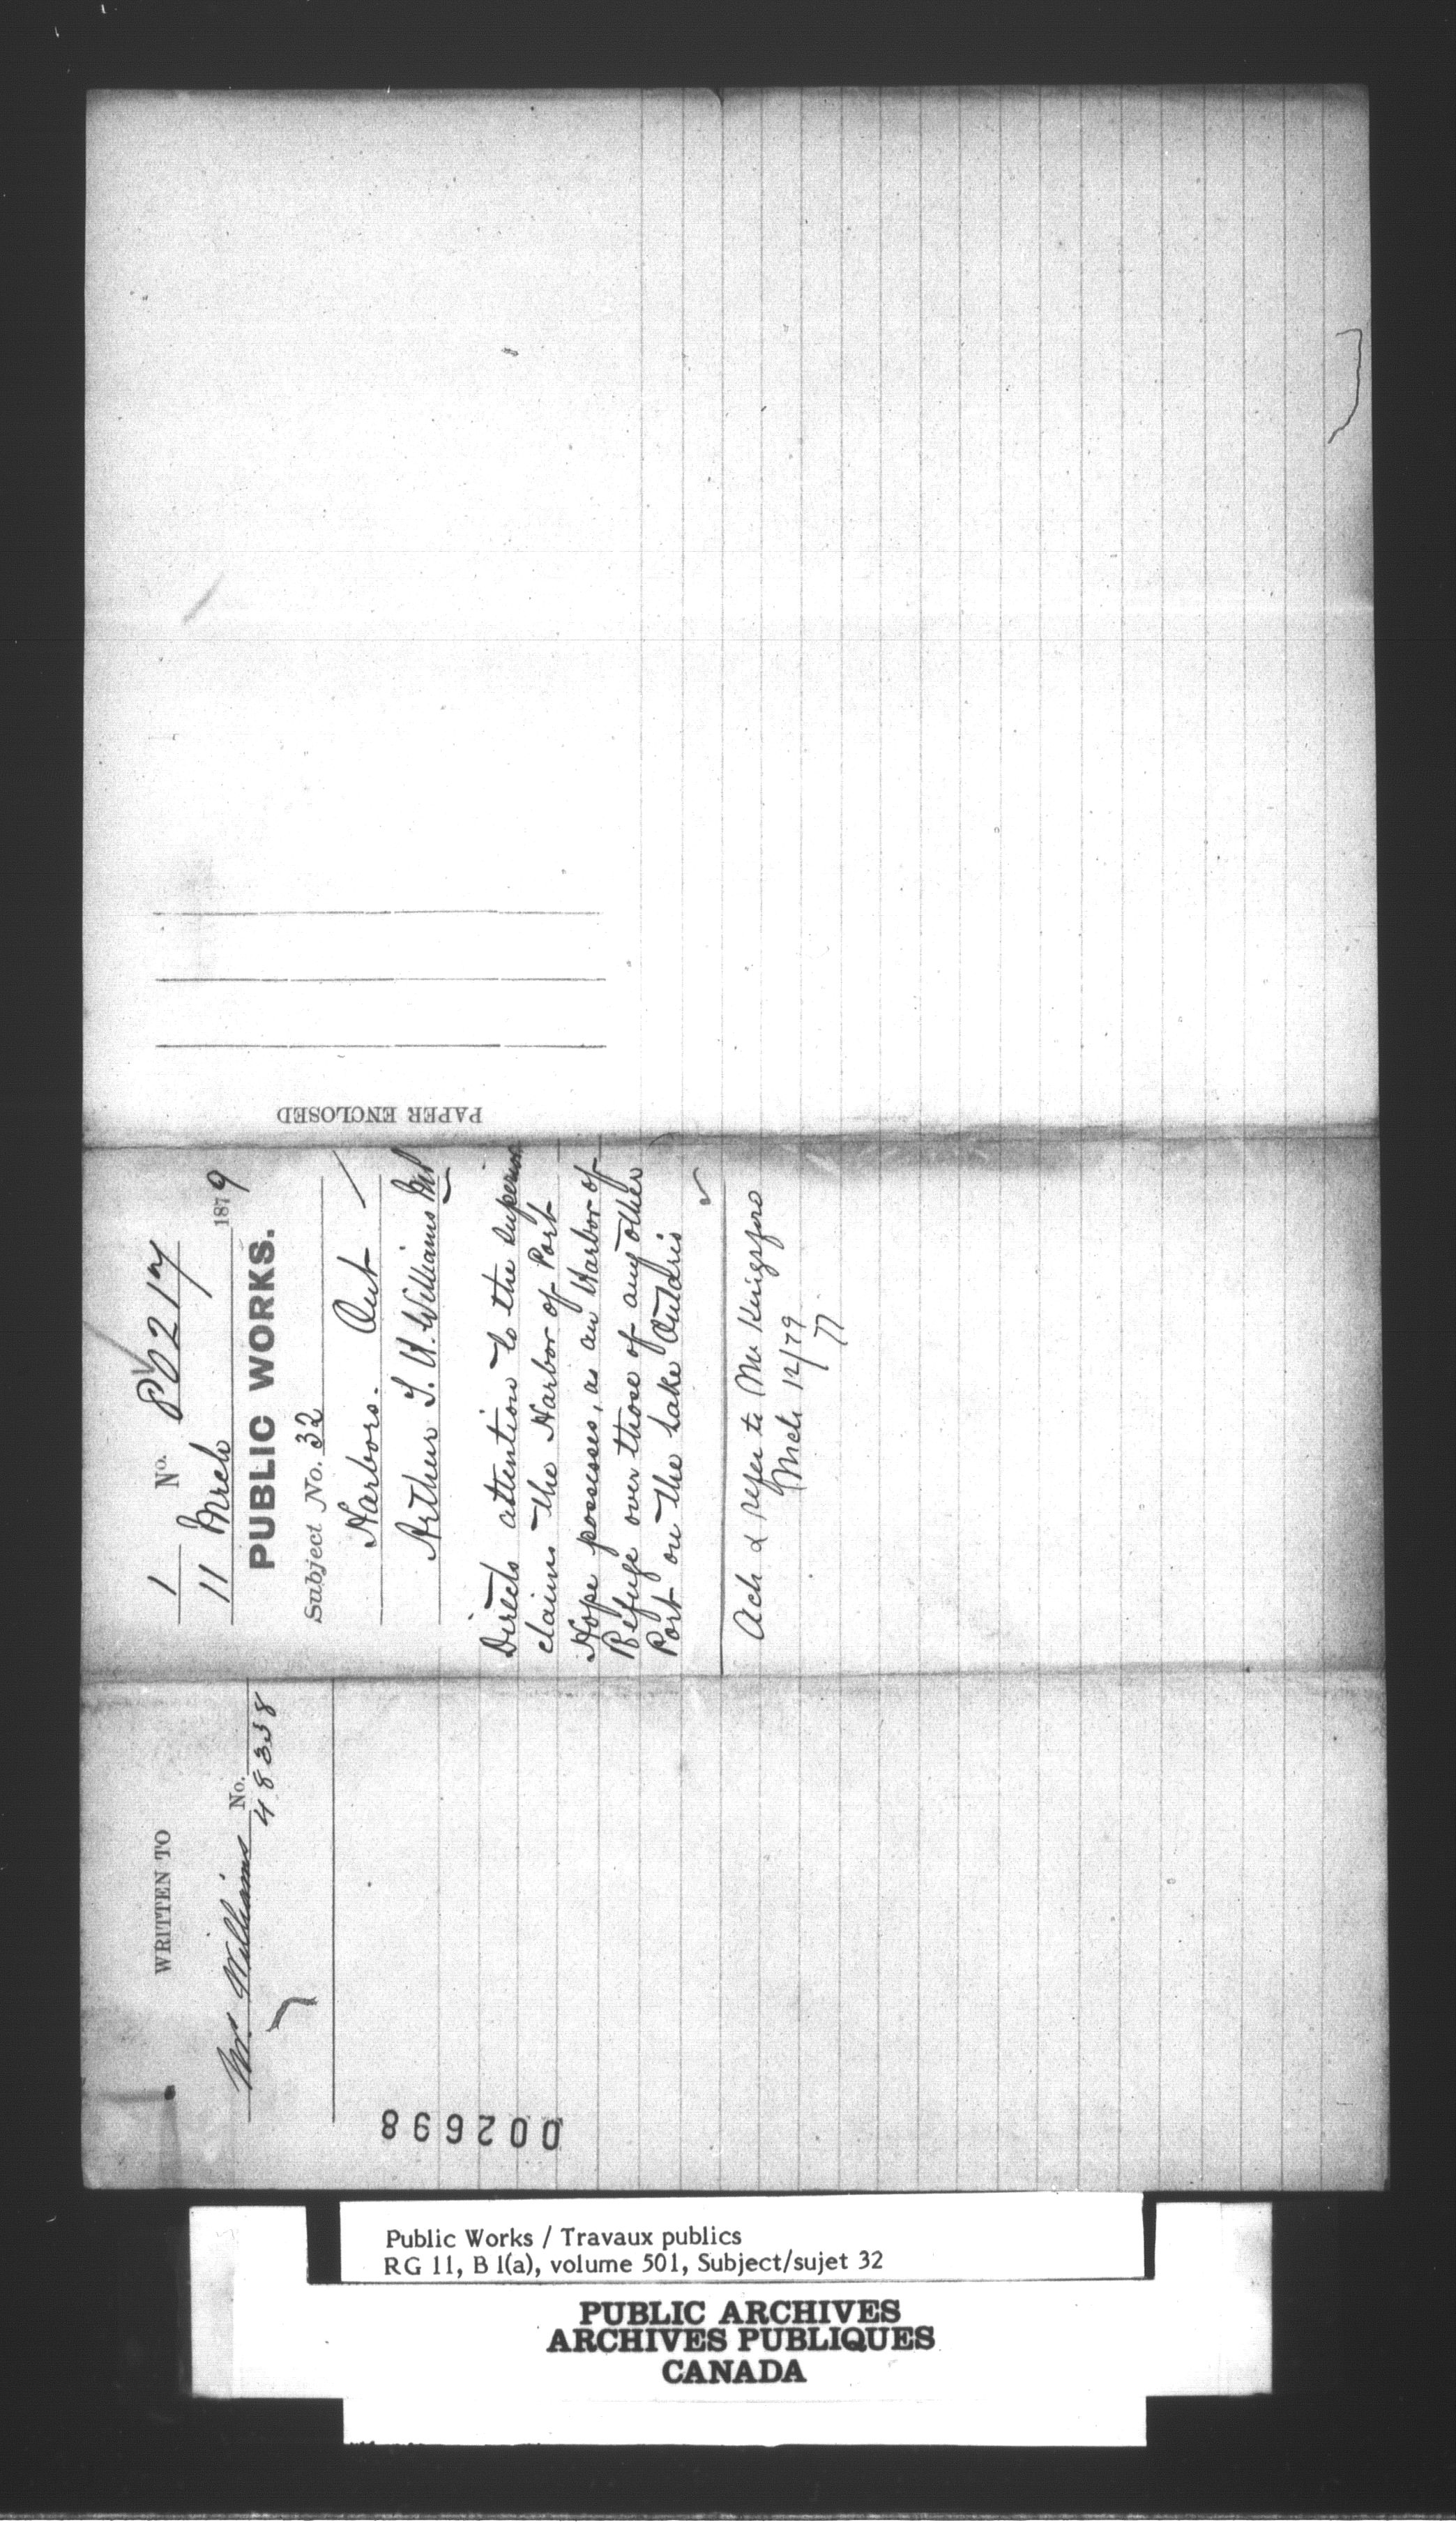 1 No. 80217
11 March 1879
PUBLIC WORKS.
Subject No. 32
Harbors. Ont
Arthur T. H. Williams MP
Directs attention to the superior
claims the Harbor of Port
Hope possesses, as an Harbor of
Refuge over those of any other
Port on the Lake Ontario
Ack & refer to Mr Kingsford
Mch 12/79
PAPER ENCLOSED
WRITTEN TO
Mr Williams No.
002698
Public Works / Travaux publics
RG 11, B 1(a), volume 501, Subject/sujet 32
PUBLIC ARCHIVES
ARCHIVES PUBLIQUES
CANADA